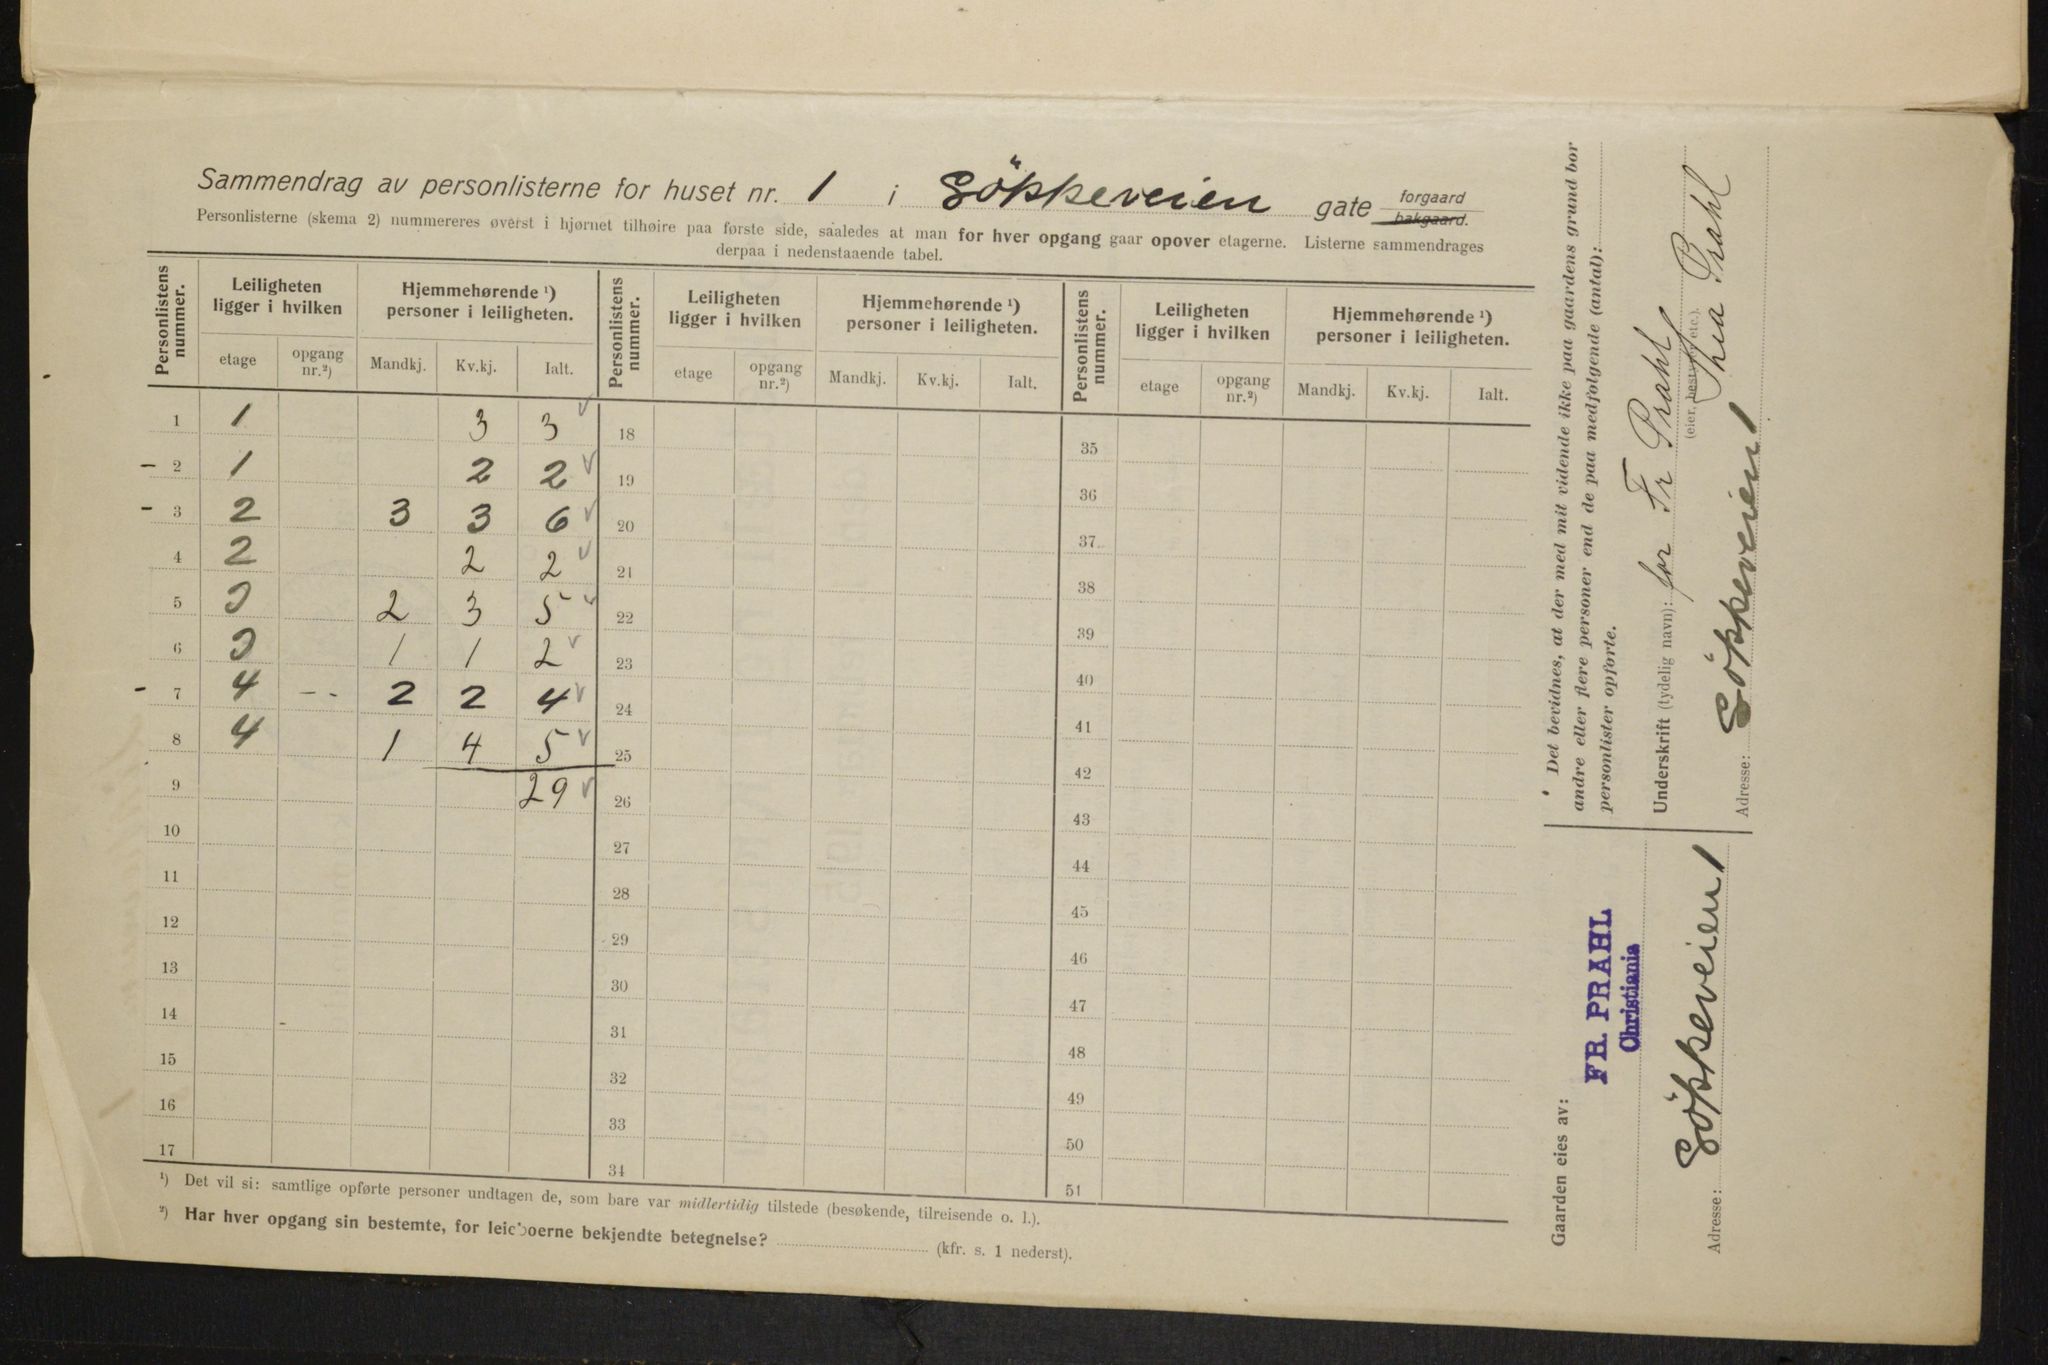 Sammendrag av personlisterne for huset nr. 1 i Gökkeveien gate forgaard bakgaard.
Personlisterne (skema 2) nummereres øverst i hjørnet tilhøire paa første side, saaledes at man for hver opgang gaar opover etagerne. Listerne sammendrages
derpaa i nedenstaaende tabel.
Personlistens nummer. Leiligheten ligger i hvilken Hjemmehørende ¹) personer i leiligheten. Personlistens nummer. Leiligheten ligger i hvilken Hjemmehørende ¹) personer i leiligheten. Personlistens nummer. Leiligheten ligger i hvilken Hjemmehørende ¹) personer i leiligheten.
etage opgang nr.²) Mandkj. Kv.kj. Ialt. etage opgang nr.²) Mandkj. Kv.kj. Ialt. etage opgang nr.²) Mandkj. Kv.kj. Ialt.
1 1 3 3 18 35
- 2 1 2 2 19 36
- 3 2 3 3 6 20 37
4 2 2 2 21 38
5 3 2 3 5 22 39
6 3 1 1 2 23 40
- 7 4 -- 2 2 4 24 41
8 4 1 4 5 25 42
9 29 26 43
10 27 44
11 28 45
12 29 46
13 30 47
14 31 48
15 32 49
16 33 50
17 34 51
¹) Det vil si: samtlige opførte personer undtagen de, som bare var midlertidig tilstede (besøkende, tilreisende o. l.).
²) Har hver opgang sin bestemte, for leieboerne bekjendte betegnelse? (kfr. s. 1 nederst).
Det bevidnes, at der med mit vidende ikke paa gaardens grund bor
andre eller flere personer end de paa medfølgende (antal):
personlister opførte.
Underskrift (tydelig navn): for Fr Prahl Thea Prahl
(eier, bestyrer etc.).
Adresse: Gökkeveien 1
Gaarden eies av:
FR. PRAHL
Christiania
Adresse: Gökkeveien 1